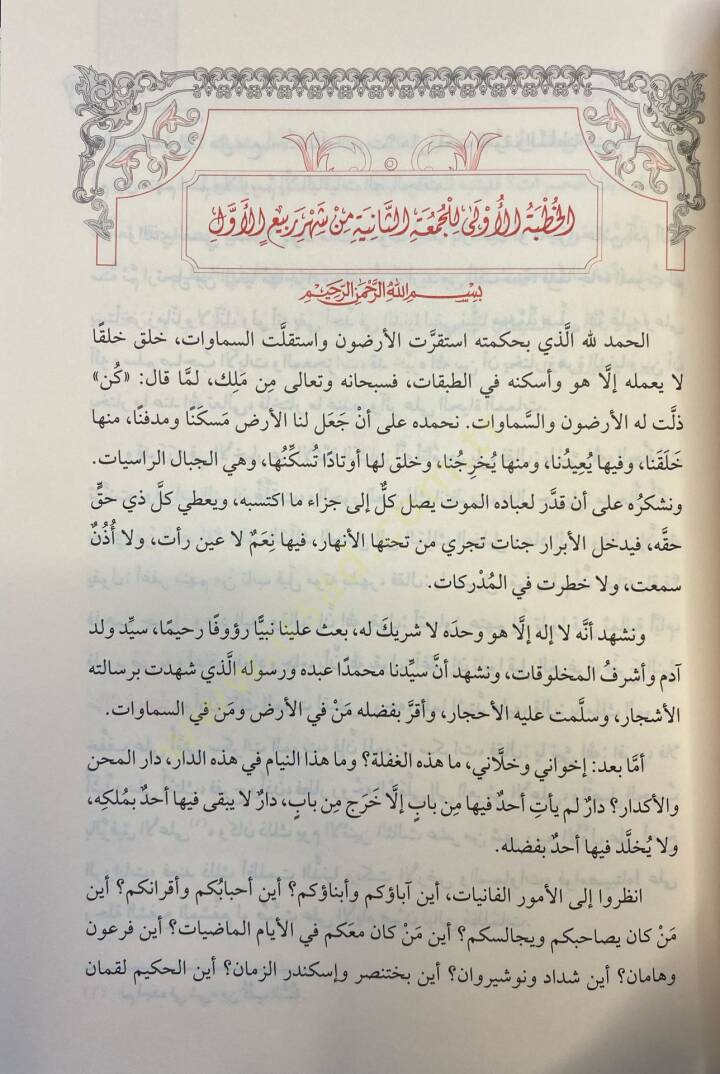 الخُطْبَةُ الأُوْلَى لِلْجُمُعَةِ الثَّانِيَةِ مِنْ شَهْرِ رَبِيْعِ الأَوَّلِ
بِسْمِ اللهِ الرَّحْمَنِ الرَّحِيْمِ
الحمد لله الَّذي بحكمته استقرَّت الأرضون واستقلَّت السماوات، خلق خلقًا
لا يعمله إلَّا هو وأسكنه في الطبقات، فسبحانه وتعالى مِن مَلِك، لمَّا قال: «كُن»
ذلَّت له الأرضون والسَّماوات. نحمده على أنْ جَعَل لنا الأرض مَسكَنًا ومدفنًا، منها
خَلَقَنا، وفيها يُعِيدُنا، ومنها يُخرِجُنا، وخلق لها أوتادًا تُسكِّنُها، وهي الجبال الراسيات.
ونشكرُه على أن قدَّر لعباده الموت يصل كلٌّ إلى جزاء ما اكتسبه، ويعطي كلَّ ذي حقٍّ
حقَّه، فيدخل الأبرار جنات تجري من تحتها الأنهار، فيها نِعَمٌ لا عين رأت، ولا أُذُنٌ
سمعت، ولا خطرت في المُدْركات.
ونشهد أنَّه لا إله إلَّا هو وحدَه لا شريكَ له، بعث علينا نبيًّا رؤوفًا رحيمًا، سيِّد ولد
آدم وأشرفُ المخلوقات، ونشهد أنَّ سيِّدنا محمدًا عبده ورسوله الَّذي شهدت برسالته
الأشجار، وسلَّمت عليه الأحجار، وأقرَّ بفضله مَنْ في الأرض ومَن في السماوات.
أمَّا بعد: إخواني وخلَّاني، ما هذه الغفلة؟ وما هذا النيام في هذه الدار، دار المحن
والأكدار؟ دارٌ لم يأتِ أحدٌ فيها مِن بابٍ إلَّا خَرَج مِن بابٍ، دارٌ لا يبقى فيها أحدٌ بمُلكِه،
ولا يُخلَّد فيها أحدٌ بفضله.
انظروا إلى الأمور الفانيات، أين آباؤكم وأبناؤكم؟ أين أحبابُكم وأقرانكم؟ أين
مَنْ كان يصاحبكم ويجالسكم؟ أين مَنْ كان معَكم في الأيام الماضيات؟ أين فرعون
وهامان؟ أين شداد ونوشيروان؟ أين بختنصر وإسكندر الزمان؟ أين الحكيم لقمان